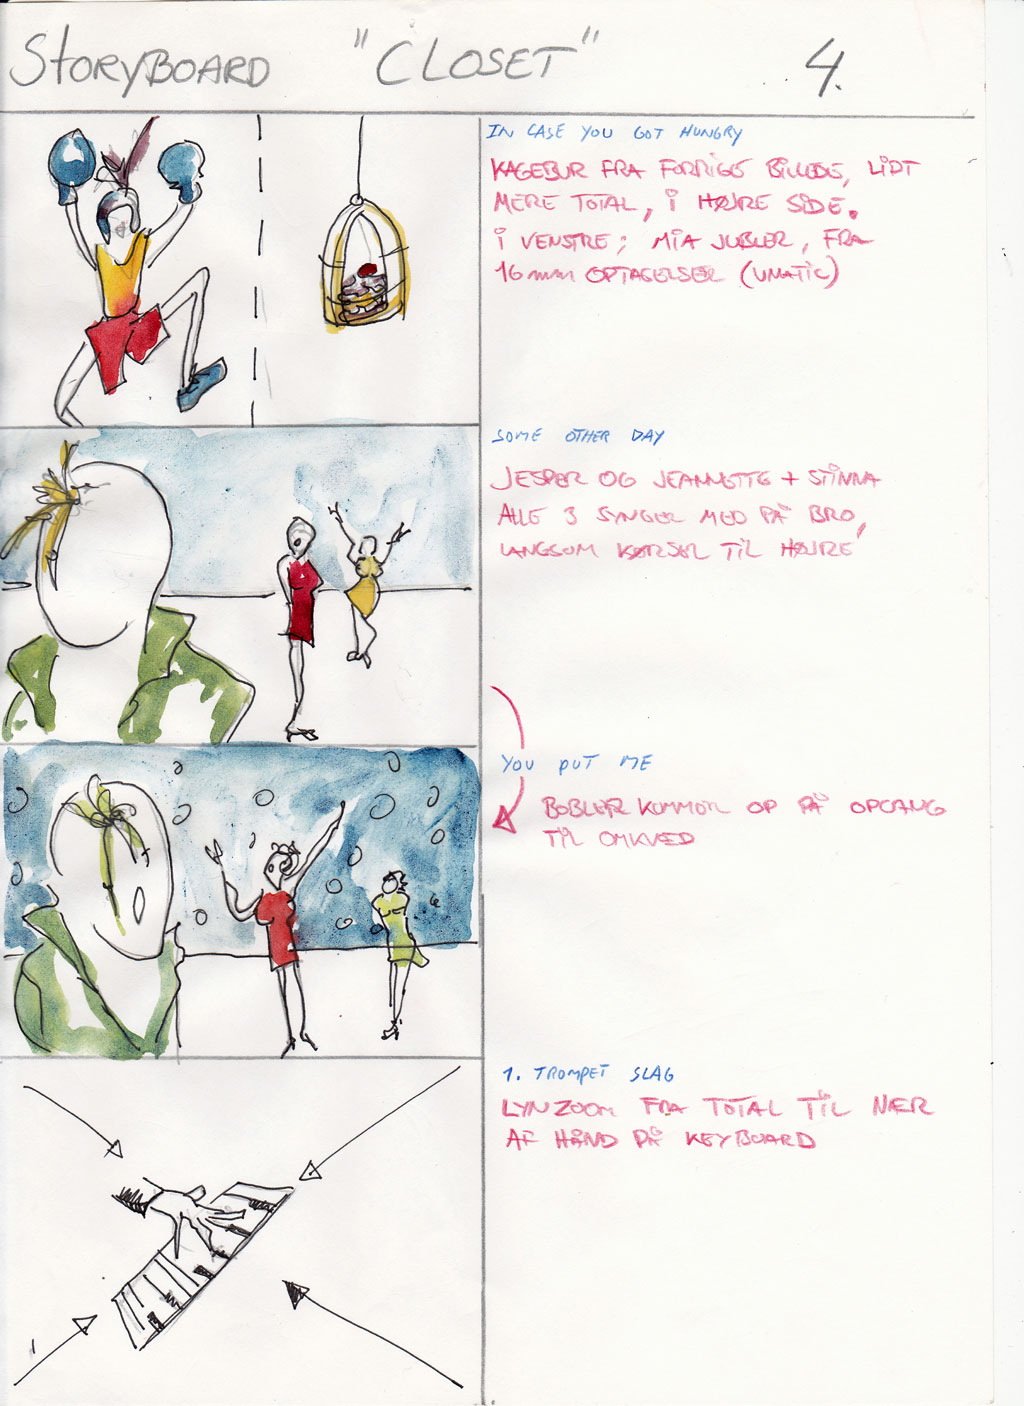 STORYBOARD "CLOSET" 4.
IN CASE YOU GOT HUNGRY
KAGEBUR FRA FORRIGE BILLEDE, LIDT
MERE TOTAL, I HØJRE SIDE.
I VENSTRE; MIA JUBLER, FRA
16mm OPTAGELSER (UMATIC)
SOME OTHER DAY
JESPER OG JEANNETTE + STINNA
ALLE 3 SYNGER MED PÅ BRO,
LANGSOM KØRSEL TIL HØJRE
YOU PUT ME
BOBLER KOMMER OP PÅ OPGANG
TIL OMKVÆD
1. TROMPET SLAG
LYNZOOM FRA TOTAL TIL NÆR
AF HÅND PÅ KEYBOARD